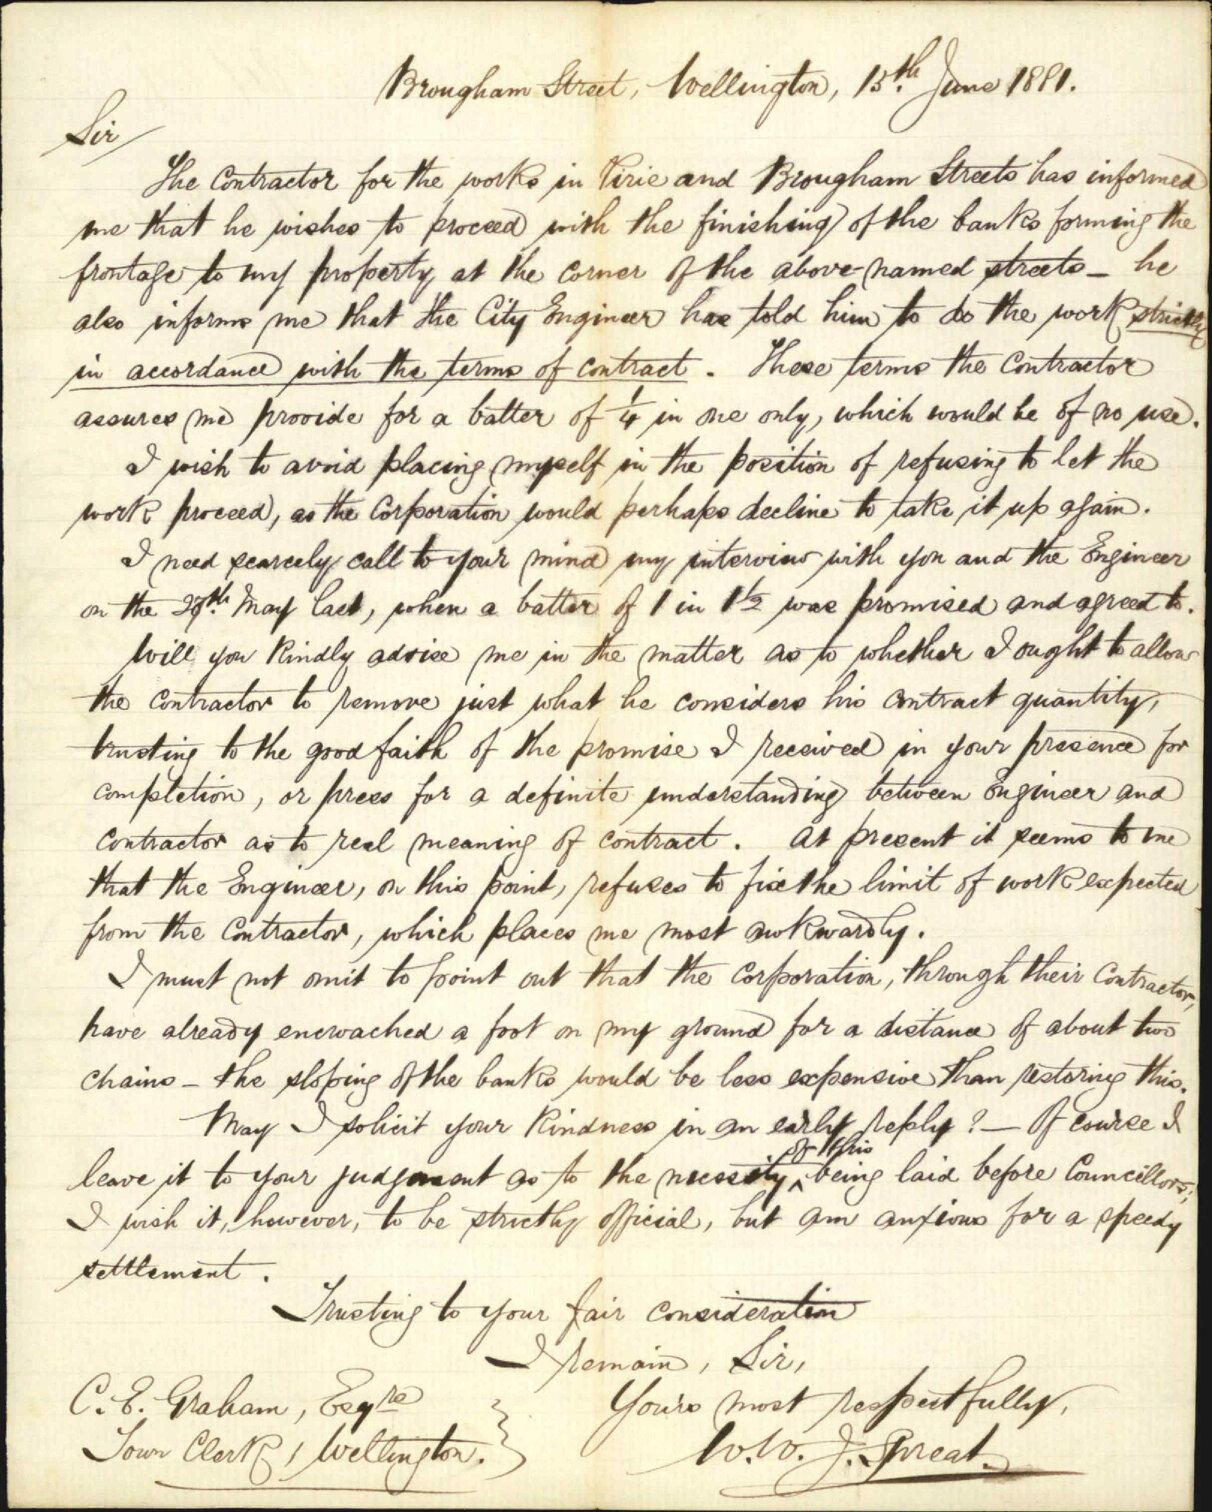 Brougham Street, Wellington, 15.th June 1881.
Sir/
The Contractor for the works in Pirie and Brougham Streets has informed
me that he wishes to proceed with the finishing of the banks forming the
frontage to my property at the corner of the above-named streets – he
also informs me that the City Engineer has told him to do the work strictly
in accordance with the terms of contract. These terms the Contractor
assures me provide for a batter of 1/4 in one only, which would be of no use.
I wish to avoid placing myself in the position of refusing to let the
work proceed, as the Corporation would perhaps decline to take it up again.
I need scarcely call to your mind my interview with you and the Engineer
on the May last, when a batter of 1 in 1 1/2 was promised and agreed to.
Will you kindly advise me in the matter as to whether I ought to allow
the contractor to remove just what he considers his contract quantity,
trusting to the good faith of the promise I received in your presence for
completion, or press for a definite understanding between Engineer and
Contractor as to real meaning of contract. At present it seems to me
that the Engineer, on this point, refuses to fix the limit of work expected
from the Contractor, which places me most awkwardly.
I must not omit to point out that the Corporation, through their Contractor,
have already encroached a foot on my ground for a distance of about two
chains – the sloping of the banks would be less expensive than restoring this.
May I solicit your kindness in an early reply? – Of course I
leave it to your judgment as to the necessity of this being laid before Councillors;
I wish it, however, to be strictly official, but am anxious for a speedy
settlement.
Trusting to your fair consideration
I remain, Sir,
Yours most respectfully,
W.W. J. Spreat.
C. E. Graham, Esqre
Town Clerk, Wellington.